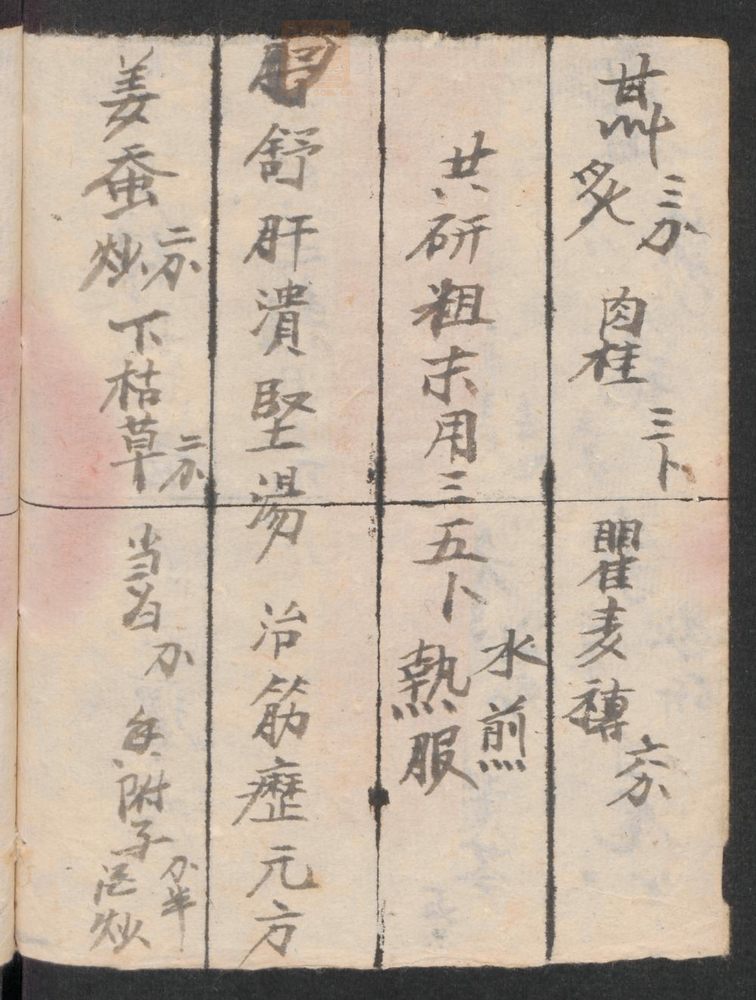 甘艸炙三分 肉桂三卜 瞿麦穗六分
共研粗末用三五卜 水煎熱服
舒肝潰堅湯 治筋癧元方
姜蚕炒二分 下枯草二分 当 分 附子分半 炒